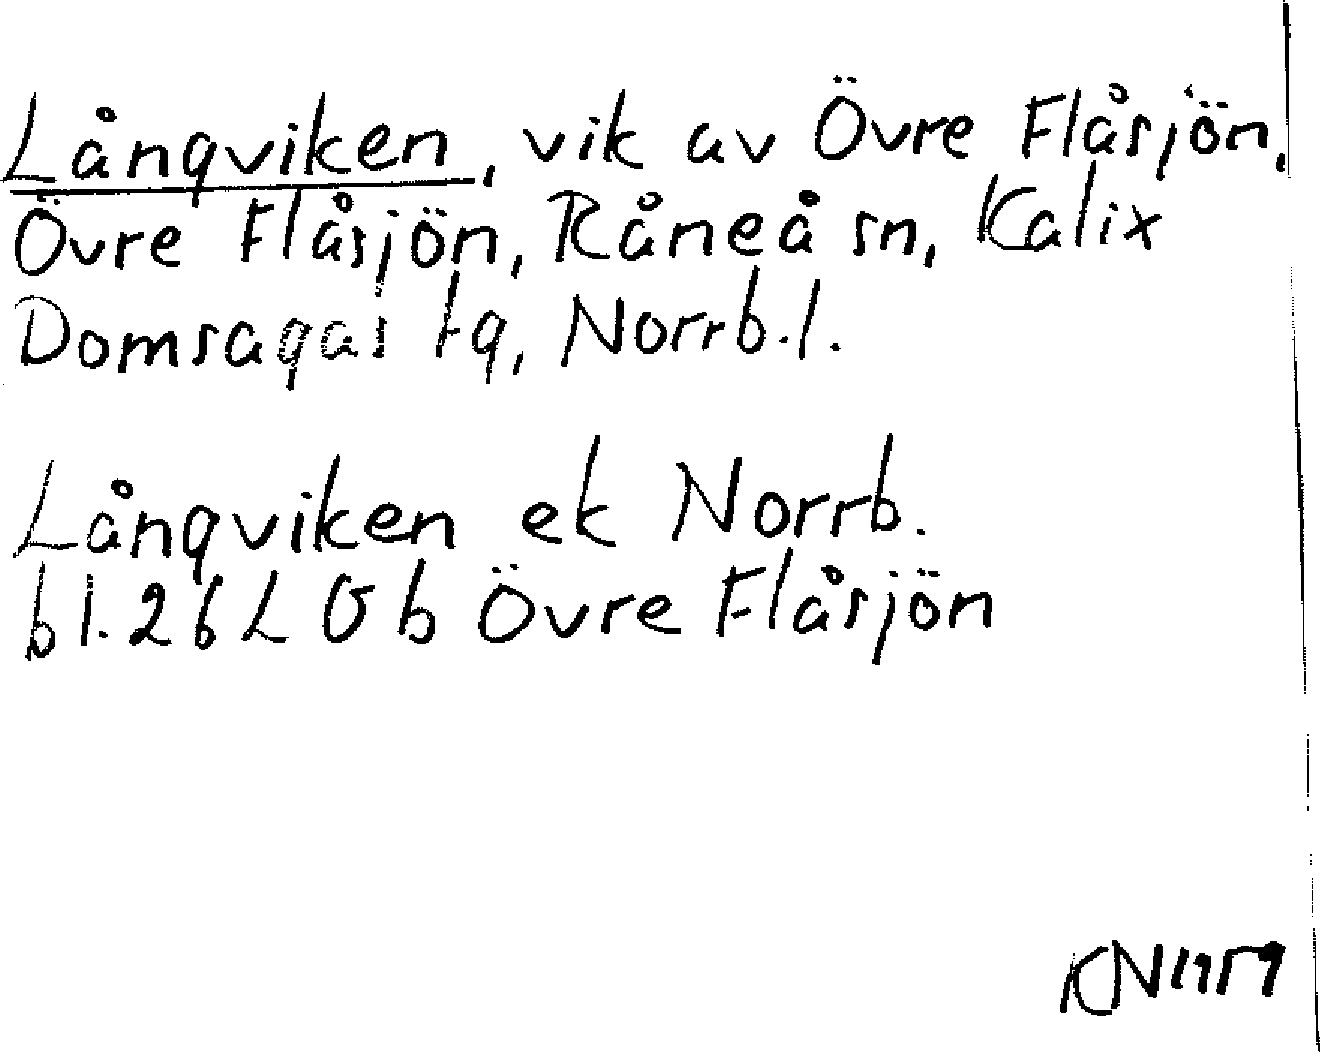 Långviken, vik av Övre Flåsjön,
Övre Flåsjön, Råneå sn, Kalix
Domsagas tg, Norrb.l.
Långviken ek Norrb.
bl. 26 L Ö b Övre Flåsjön
KN 1959